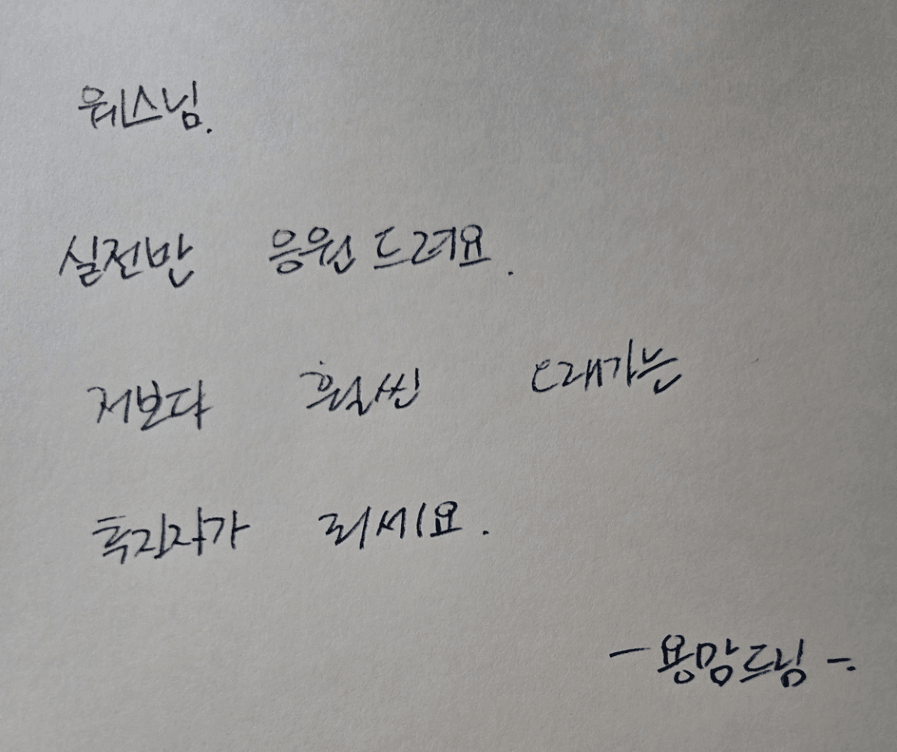 웨스님.
실전반 응원드려요.
저보다 훨씬 뜨래가는
투자자가 되세요.
-용맘드림-